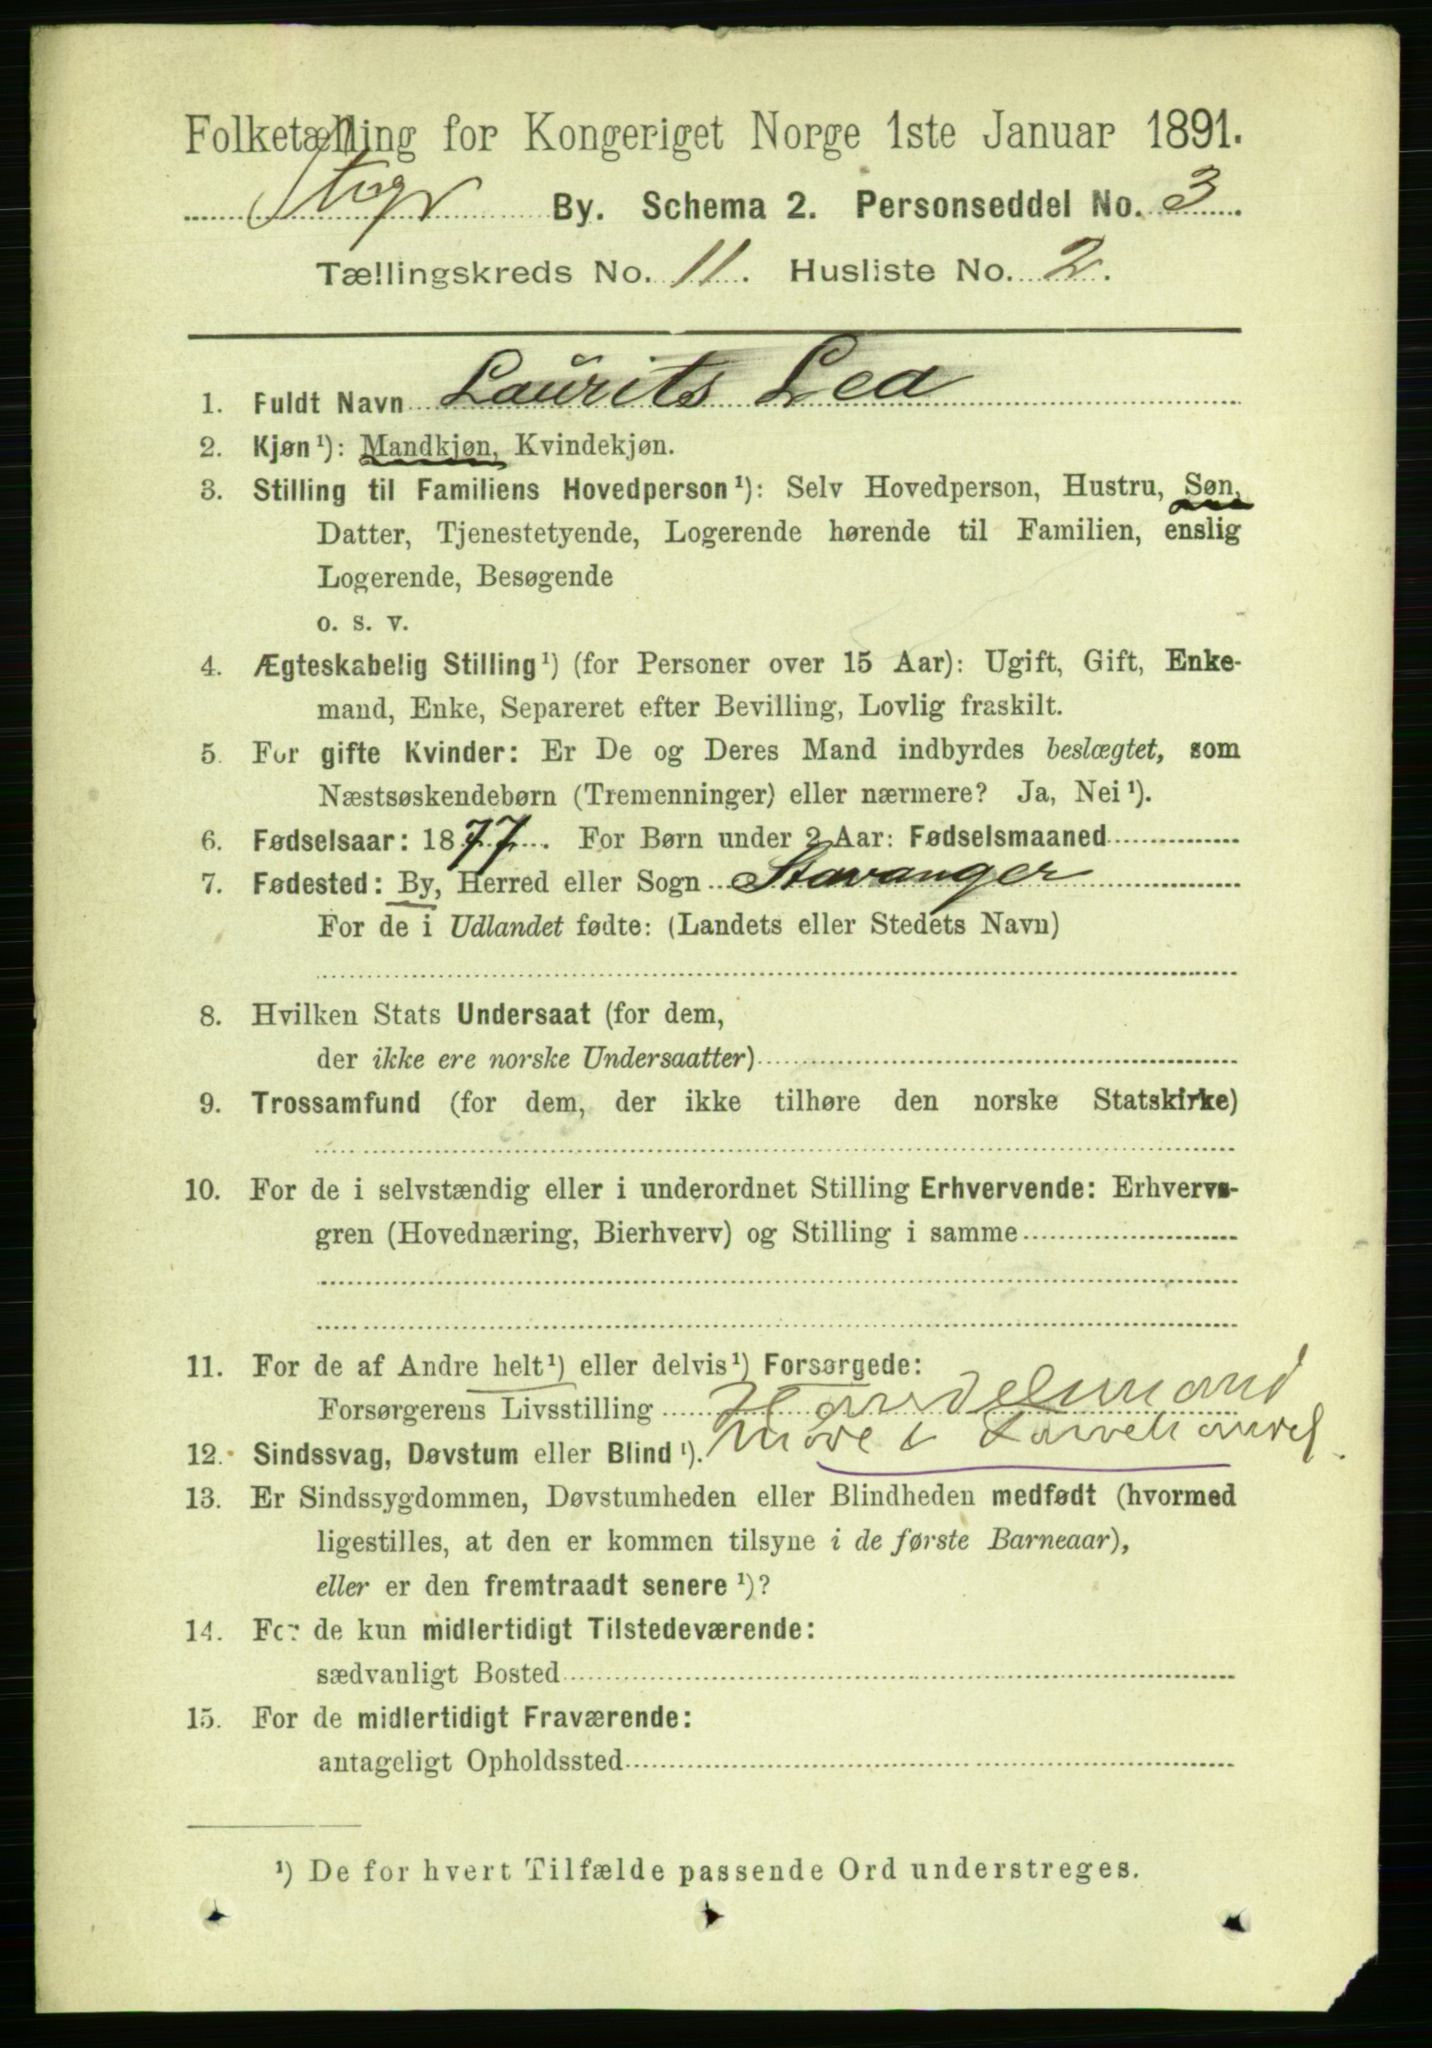 Folketælling for Kongeriget Norge 1ste Januar 1891.
Stvgr By. Schema 2. Personseddel No. 3.
Tællingskreds No. 11. Husliste No. 2.
1. Fuldt Navn Laurits Lea
2. Kjøn¹): Mandkjøn, Kvindekjøn.
3. Stilling til Familiens Hovedperson¹): Selv Hovedperson, Hustru, Søn,
Datter, Tjenestetyende, Logerende hørende til Familien, enslig
Logerende, Besøgende
o. s. v.
4. Ægteskabelig Stilling¹) (for Personer over 15 Aar): Ugift, Gift, Enke-
mand, Enke, Separeret efter Bevilling, Lovlig fraskilt.
5. For gifte Kvinder: Er De og Deres Mand indbyrdes beslægtet, som
Næstsøskendebørn (Tremenninger) eller nærmere? Ja, Nei¹).
6. Fødselsaar: 1877. For Børn under 2 Aar: Fødselsmaaned
7. Fødested: By, Herred eller Sogn Stavanger
For de i Udlandet fødte: (Landets eller Stedets Navn)
8. Hvilken Stats Undersaat (for dem,
der ikke ere norske Undersaatter)
9. Trossamfund (for dem, der ikke tilhøre den norske Statskirke)
10. For de i selvstændig eller i underordnet Stilling Erhvervende: Erhvervs-
gren (Hovednæring, Bierhverv) og Stilling i samme
11. For de af Andre helt¹) eller delvis¹) Forsørgede:
Forsørgerens Livsstilling Handelsmand
12. Sindssvag, Døvstum eller Blind¹).
13. Er Sindssygdommen, Døvstumheden eller Blindheden medfødt (hvormed
ligestilles, at den er kommen tilsyne i de første Barneaar),
eller er den fremtraadt senere¹)?
14. For de kun midlertidigt Tilstedeværende:
sædvanligt Bosted
15. For de midlertidigt Fraværende:
antageligt Opholdssted
¹) De for hvert Tilfælde passende Ord understreges.